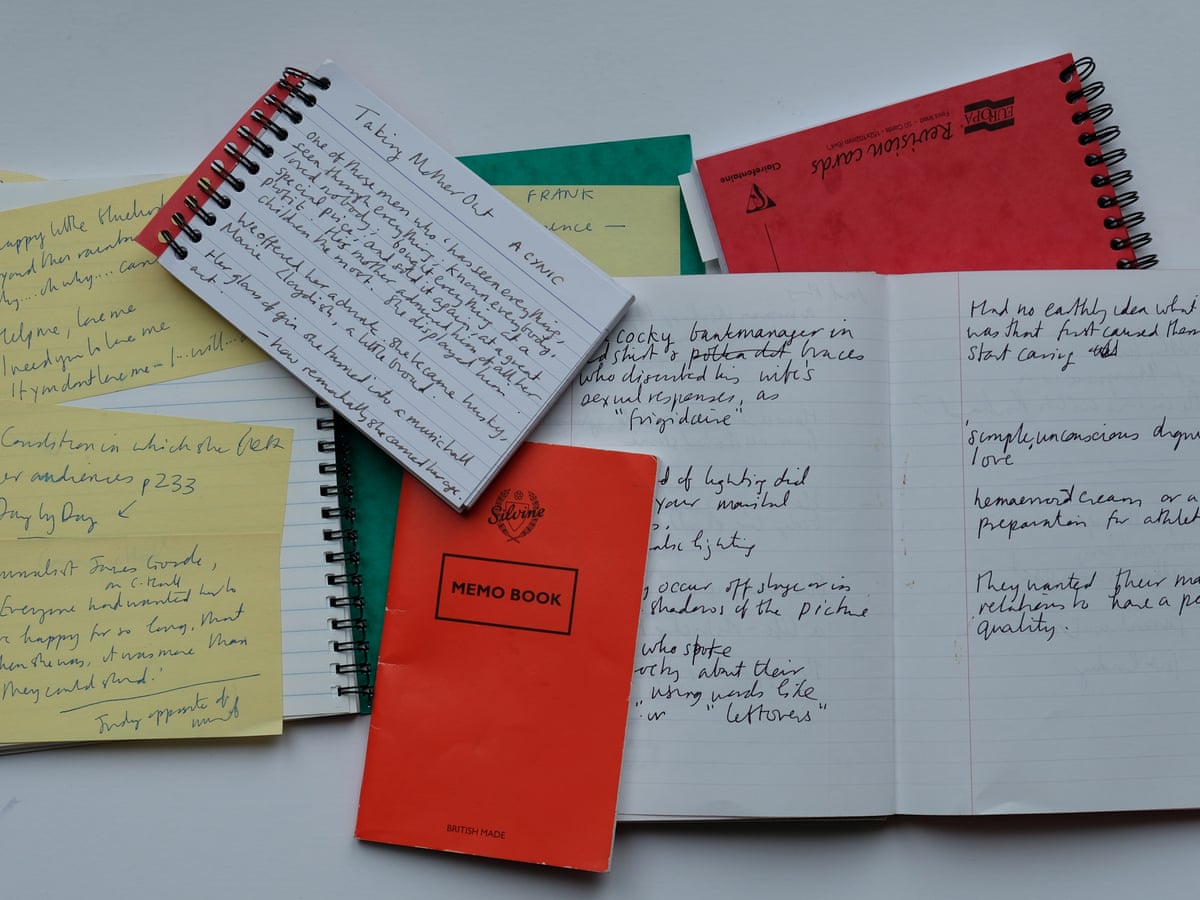 Taking Mother Out
A CYNIC
one of those men who 'has seen everything,
seen through everything, known everybody,
loved nobody, bought everything at a
special price, and sold it again at a great
profit.' His mother admired him of all her
children the most. She displayed him
We offered her a drink & she became husky,
Marie Lloydish, a little broad.
Her glass of gin she turned into a music hall
act.
— how remarkably she carried her age.
FRANK
EUROPA
Revision cards
Clairefontaine
happy little bluebirds
beyond the rainbow
why.... oh why.... can
Help me, love me
I need you to love me
If you don't love me — I... will...
Condition in which she
audiences p233
Day by Day
James
on C. Hall
Everyone had wanted her to
happy for so long, that
when she was, it was more than
they could stand.'
Judy opposite of
Silvine
MEMO BOOK
BRITISH MADE
cocky bankmanager in
shirt & polka dot braces
who discussed his wife's
sexual responses, as
"frigidaire"
of lighting did
your marital
lighting
occur off stage or in
shadows of the picture
who spoke
about their
using words like
"leftovers"
Had no earthly idea what
was that first caused them
start caring
'simple, unconscious
love
hemaerroid creams or a
preparation for
They wanted their
relations to have a
quality.